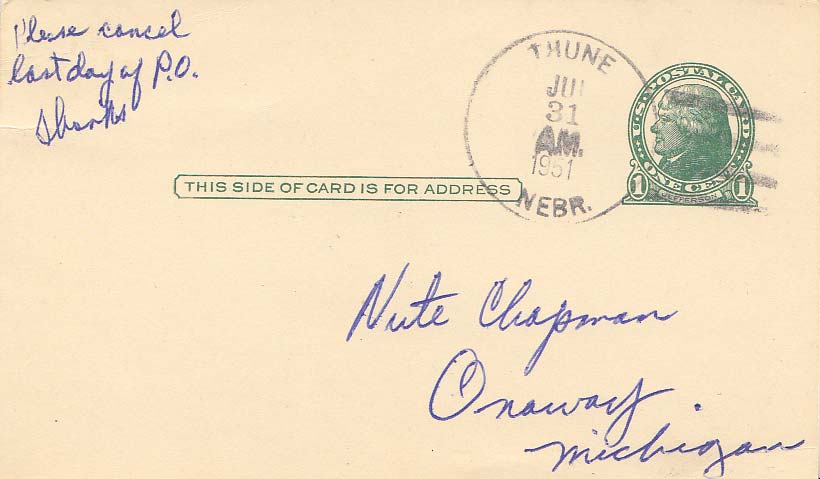 Please cancel
last day of P.O.
Thanks
THUNE
JUL
31
A.M.
1951
NEBR.
U.S. POSTAL CARD
ONE CENT
1 JEFFERSON 1
THIS SIDE OF CARD IS FOR ADDRESS
Nute Chapman
Onaway.
Michigan